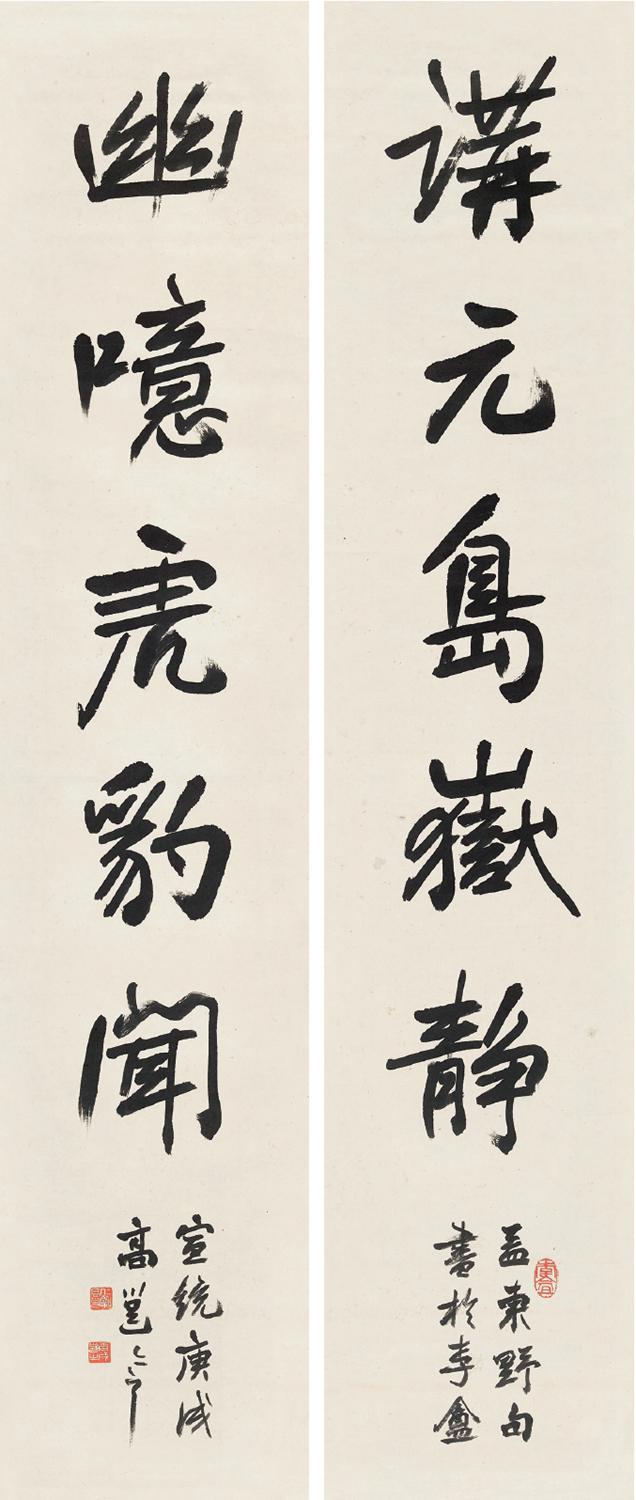 講元島嶽靜
孟東野句
書於李盦
幽噫虎豹聞
宣統庚戌
高邕